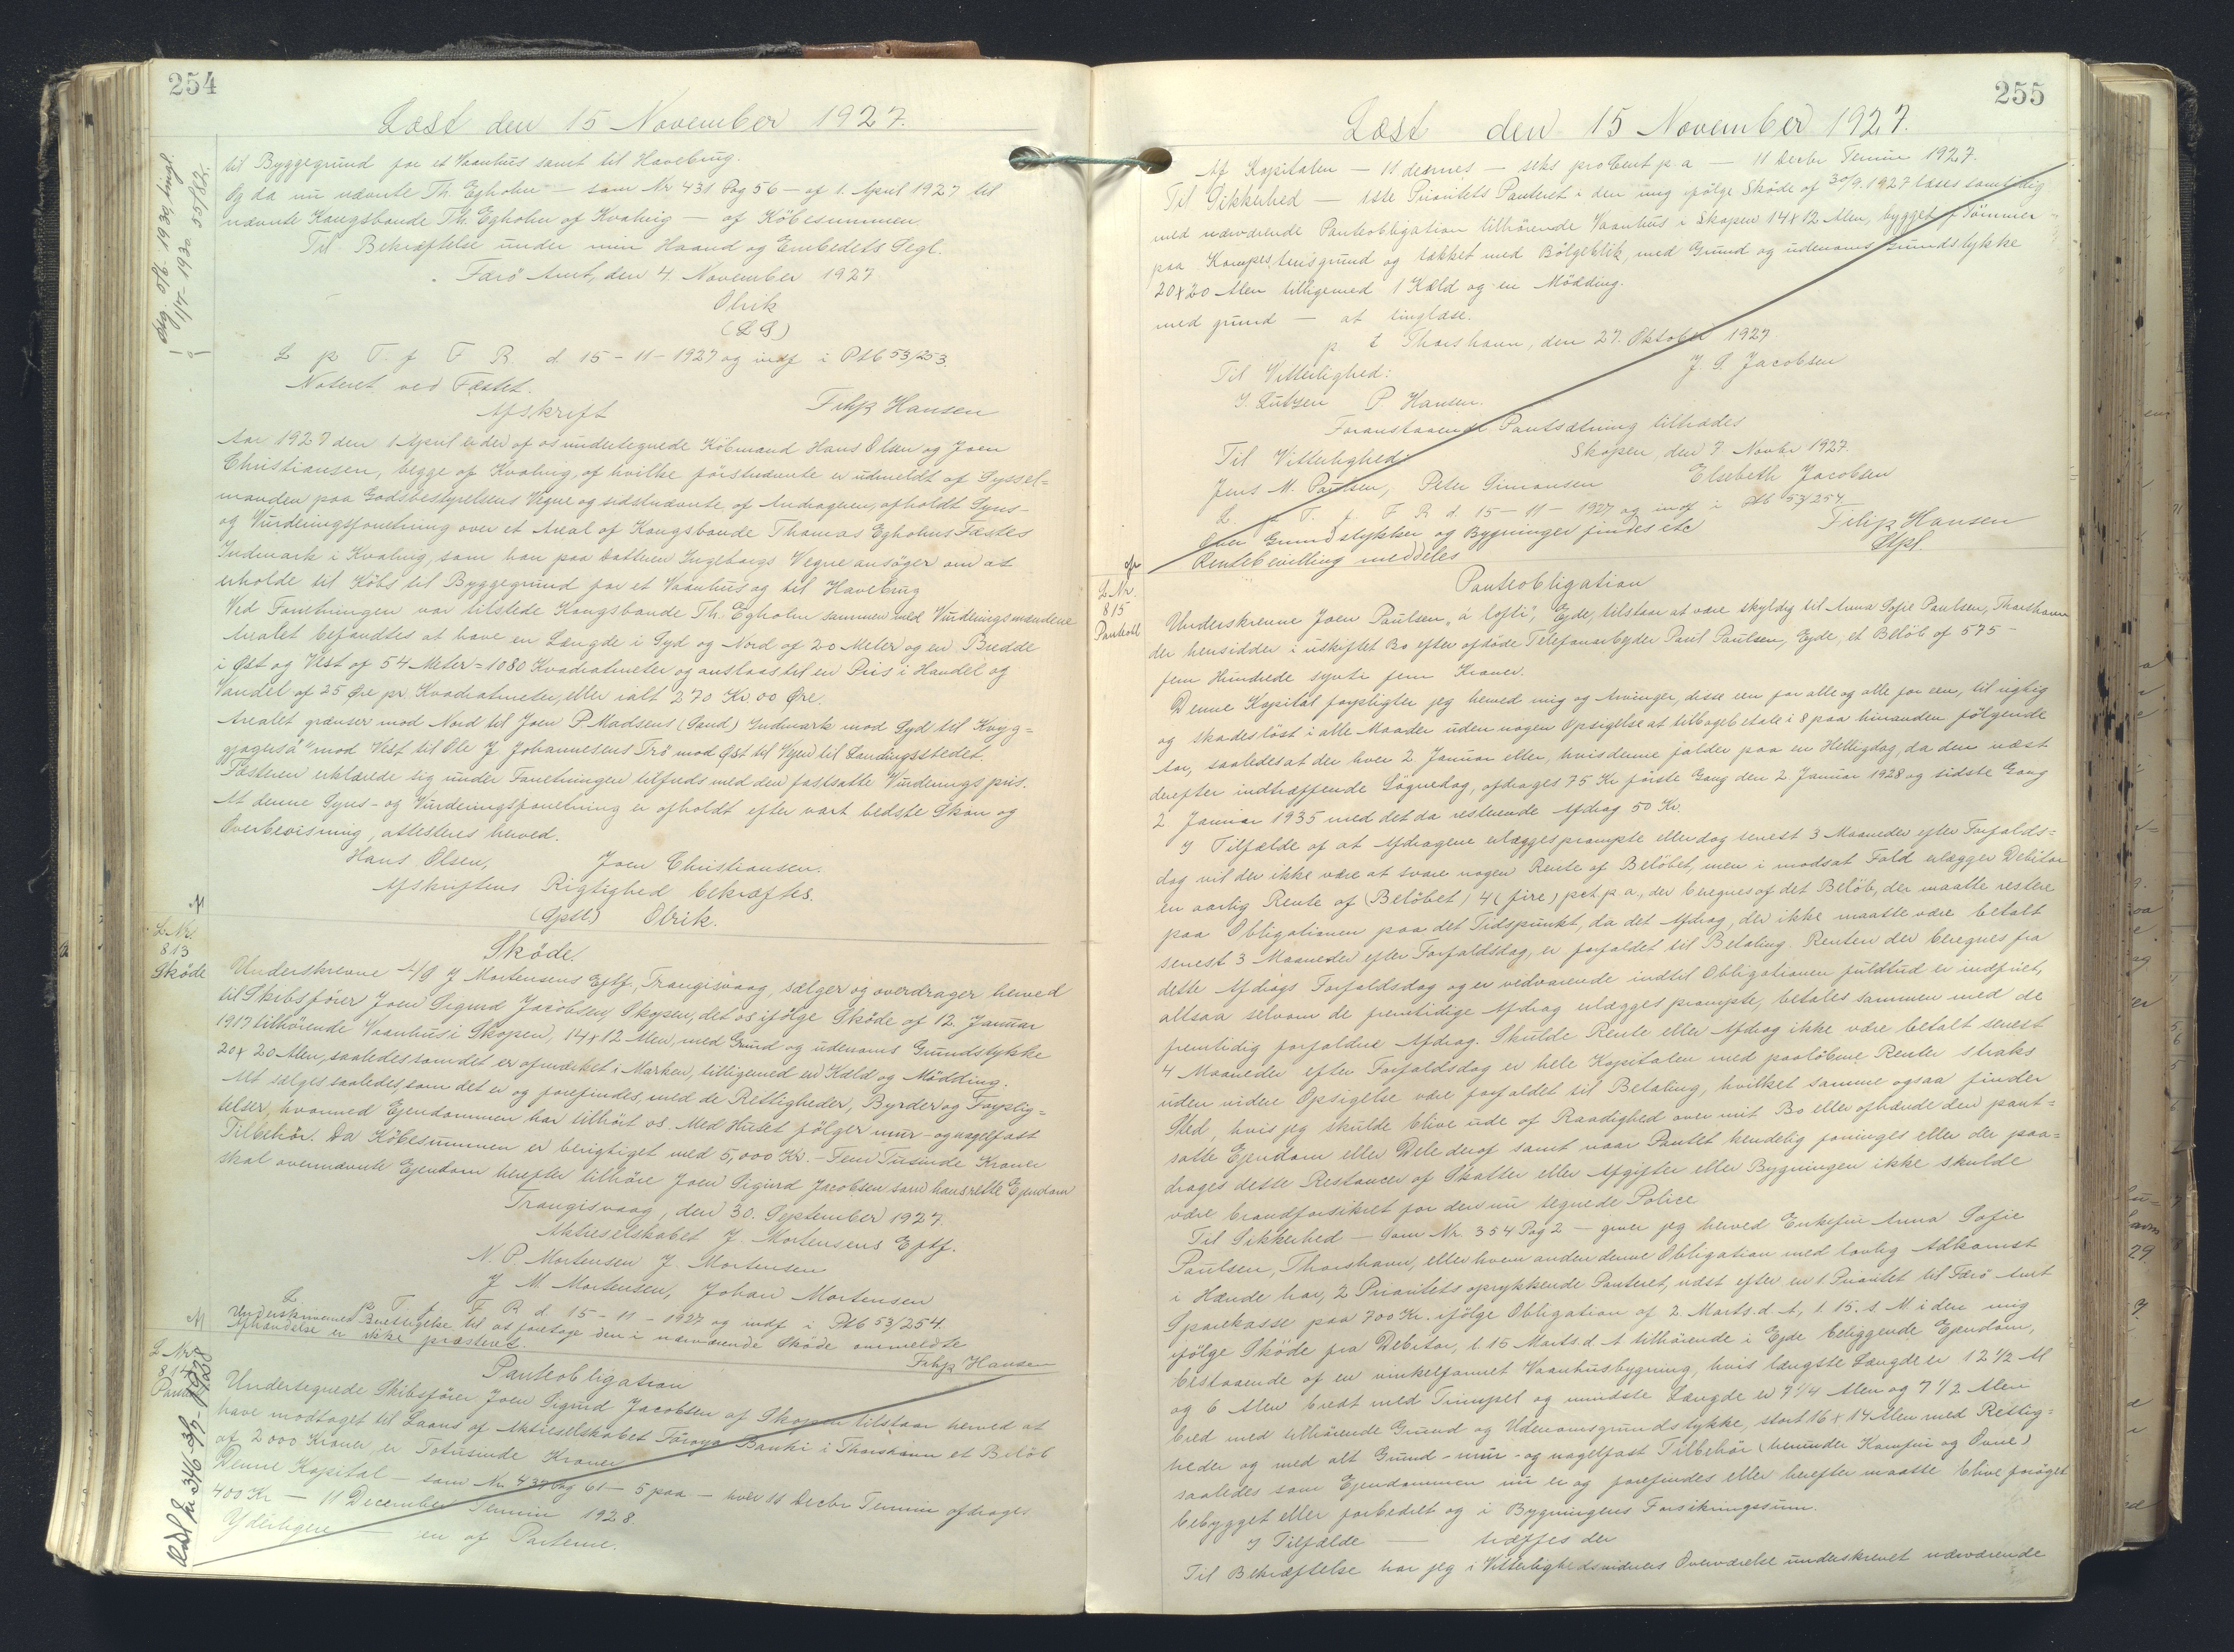 254
Læst den 15 November 1927.
til Byggegrund for et Vaanhus samt til Havebrug.
Og da nu nævnte Th. Egholm — som Nr 431 Pag 56 — af 1. April 1927 til
nævnte Kongsbonde Th. Egholm af Kvalvig — af Købesummen.
Til Bekræftelse under min Haand og Embedets Segl.
Færø Amt, den 4 November 1927
Olrik
(L S)
L p T. f F R. d 15-11-1927 og indf i Ptb 53/253.
Noteret ved Fæstet.
Filip Hansen
Afskrift
Aar 1927 den 1 April er der af os undertegnede Købmand Hans Olsen og Joen
Christiansen, begge af Kvalvig, af hvilke førstnævnte er udmeldt af Syssel=
manden paa Godsbestyrelsens Vegne og sidstnævnte af Andrageren, afholdt Syns-
og Vurderingsforretning over et Areal af Kongsbonde Thomas Egholms Fæstes
Indmark i Kvalvig, som han paa Datteren Ingeborgs Vegne ansøger om at
erholde til Købs til Byggegrund for et Vaanhus og til Havebrug
Ved Forretningen var tilstede Kongsbonde Th. Egholm sammen med Vurderingsmændene
Arealet befandtes at have en Længde i Syd og Nord af 20 Meter og en Bredde
i Øst og Vest af 54 Meter = 1080 Kvadratmeter og ansloas til en Pris i Handel og
Vandel af 25 Øre pr Kvadratmeter, eller ialt 270 Kr. 00 Øre.
Arealet grænser mod Nord til Joen P Madsens (Sand) Indmark mod Syd til Kvyg=
gjogvsá" mod Vest til Ole J Johannesens Trö mod Øst til Vejen til Landingsstedet.
Fæsteren erklærede sig under Forretningen tilfreds med den fastsatte Vurderingspris.
At denne Syns- og Vurderingsforretning er afholdt efter vort bedste Skøn og
Overbevisning, attesteres herved.
Hans Olsen, Joen Christiansen.
Afskriftens Rigtighed bekræftes.
(Sptl.) Olrik.
L Nr.
813
Skøde
Skøde.
Underskrevne A/S J Mortensens Eftf., Trangisvaag, sælger og overdrager herved
til Skibsfører Joen Sigurd Jacobsen, Skopen, det os ifølge Skøde af 12. Januar
1917 tilhørende Vaanhus i Skopen, 14 x 12 Alen, med Grund og udenoms Grundstykke
20 x 20 Alen, saaledes som det er afmærket i Marken, tilligemed en Kæld og Mødding.
Alt sælges saaledes, som det er og forefindes, med de Rettigheder, Byrder og Forplig=
telser, hvormed Ejendommen har tilhørt os. Med Huset følger mur- og nagelfast
Tilbehør. Da Købesummen er berigtiget med 5,000 Kr. – Fem Tusinde Kroner
skal ovennævnte Ejendom herefter tilhøre Joen Sigurd Jacobsen som hans rette Ejendom
Trangisvaag, den 30. September 1927.
Aktieselskabet J. Mortensens Eftf.
N. P. Mortensen J. Mortensen
J M. Mortensen, Johan Mortensen
L p T. f F R d. 15-11-1927 og indf i Ptb 53/254.
Underskrivernes Berettigelse til at foretage den i nærværende Skøde ommeldte
Afhændelse er ikke præsteret.
Filip Hansen
L Nr.
814
Pantobl
Panteobligation
Undertegnede Skibsfører Joen Sigurd Jacobsen af Skopen tilstaar herved at
have modtaget til Laans af Aktieselskabet Føroya Banki i Thorshavn et Beløb
af 2000 Kroner, er Totusinde Kroner
Denne Kapital – som Nr. 437 Pag 61 – 5 paa – hver 11 Decbr Termin afdrages
400 Kr – 11 December Termin 1928.
Yderligere — en af Parterne.
255
Læst den 15 November 1927.
Af Kapitalen — 11 dsernes — seks proCent p. a — 11 Decbr Termin 1927.
Til Sikkerhed — 1ste Prioritets Panteret i den mig ifølge Skøde af 30/9. 1927 læses samtidig
med nærværende Panteobligation tilhørende Vaanhus i Skopen 14 x 12 Alen, bygget af Tømmer
paa Kampestensgrund og takket med Bølgeblik, med Grund og udenoms Grundstykke
20 x 20 Alen tilligemed 1 Kæld og en Mødding.
med grund — at tinglæse.
p. t Thorshavn, den 27. Oktober 1927
J S Jacobsen
Til Vitterlighed:
I. Lützen P Hansen.
Foranstaaende Pantsætning tiltrædes
Skopen, den 7 Novbr 1927.
Til Vitterlighed: Elsebeth Jacobsen
Jens M. Poulsen, Peter Simonsen
L. p T. f F R d 15-11-1927 og indf i Ptb 53/254
Over Grundstykker og Bygninger findes etc
Filip Hansen
Rentebevilling meddeles
Stpl.
L Nr.
815
Pantobl
Panteobligation
Underskrevne Joen Paulsen „á lofti", Ejde, tilstaar at være skyldig til Anna Sofie Paulsen, Thorshavn
der hensidder i uskiftet Bo efter afdøde Telefonarbejder Paul Paulsen, Ejde, et Beløb af 575 –
fem Hundrede syvti fem Kroner.
Denne Kapital forpligter jeg herved mig og Arvinger, disse een for alle og alle for een, til rigtig
og skadesløst i alle Maader uden nogen Opsigelse at tilbagebetale i 8 paa hinanden følgende
Aar, saaledes at der hver 2 Januar eller, hvis denne falder paa en Helligdag, da den næst
derefter indtræffende Søgnedag, afdrages 75 Kr første Gang den 2 Januar 1928 og sidste Gang
2 Januar 1935 med det da resterende Afdrag 50 Kr.
I Tilfælde af at Afdragene erlægges prompte eller dog senest 3 Maaneder efter Forfalds=
dag vil der ikke være at svare nogen Rente af Beløbet, men i modsat Fald erlægger Debitor
en aarlig Rente af (Beløbet) 4 (fire) pct p a, der beregnes af det Beløb, der maatte restere
paa Obligationen paa det Tidspunkt, da det Afdrag, der ikke maatte være betalt
senest 3 Maaneder efter Forfaldsdag, er forfaldet til Betaling. Renten der beregnes fra
dette Afdrags Forfaldsdag og er vedvarende indtil Obligationen fuldtud er indfriet,
altsaa selvom de fremtidige Afdrag erlægges prompte, betales sammen med de
fremtidig forfaldne Afdrag. Skulde Rente eller Afdrag ikke være betalt senest
4 Maaneder efter Forfaldsdag er hele Kapitalen med paaløbne Renter straks
uden videre Opsigelse være forfaldet til Betaling, hvilket samme ogsaa finder
Sted, hvis jeg skulde blive ude af Raadighed over mit Bo eller afhænde den pant=
satte Ejendom eller Dele deraf samt naar Pantet kendelig forringes eller der paa=
drages dette Restancer af Skatter eller Afgifter eller Bygningen ikke skulde
være brandforsikret for den nu tegnede Police
Til Sikkerhed — som Nr. 354 Pag 2 — giver jeg herved Enkefru Anna Sofie
Paulsen, Thorshavn, eller hvem anden denne Obligation med lovlig Adkomst
i Hænde har, 2 Prioritets oprykkende Panteret, næst efter en 1. Prioritet til Færø Amt
Sparekasse paa 700 Kr. ifølge Obligation af 2. Marts. d. A, l. 15. s M i den mig
ifølge Skøde fra Debitor, l. 15 Marts. d. A tilhørende i Ejde beliggende Ejendom,
bestaaende af en vinkelformet Vaanhusbygning, hvis længste Længde er 12 1/2 Al
og 6 Alen bredt med Trumpel og mindste Længde er 7 1/4 Alen og 7 1/2 Alen
bred med tilhørende Grund og Udenomsgrundstykke, stort 16 x 14 Alen med Rettig=
heder og med alt Grund- mur- og nagelfast Tilbehør (herunder Komfur og Ovne)
saaledes som Ejendommen nu er og forefindes eller herefter maatte blive forøget
bebygget eller forbedret og i Bygningens Forsikringssum.
I Tilfælde — træffes der
Til Bekræftelse har jeg i Vitterlighedsvidners Overværelse underskrevet nærværende